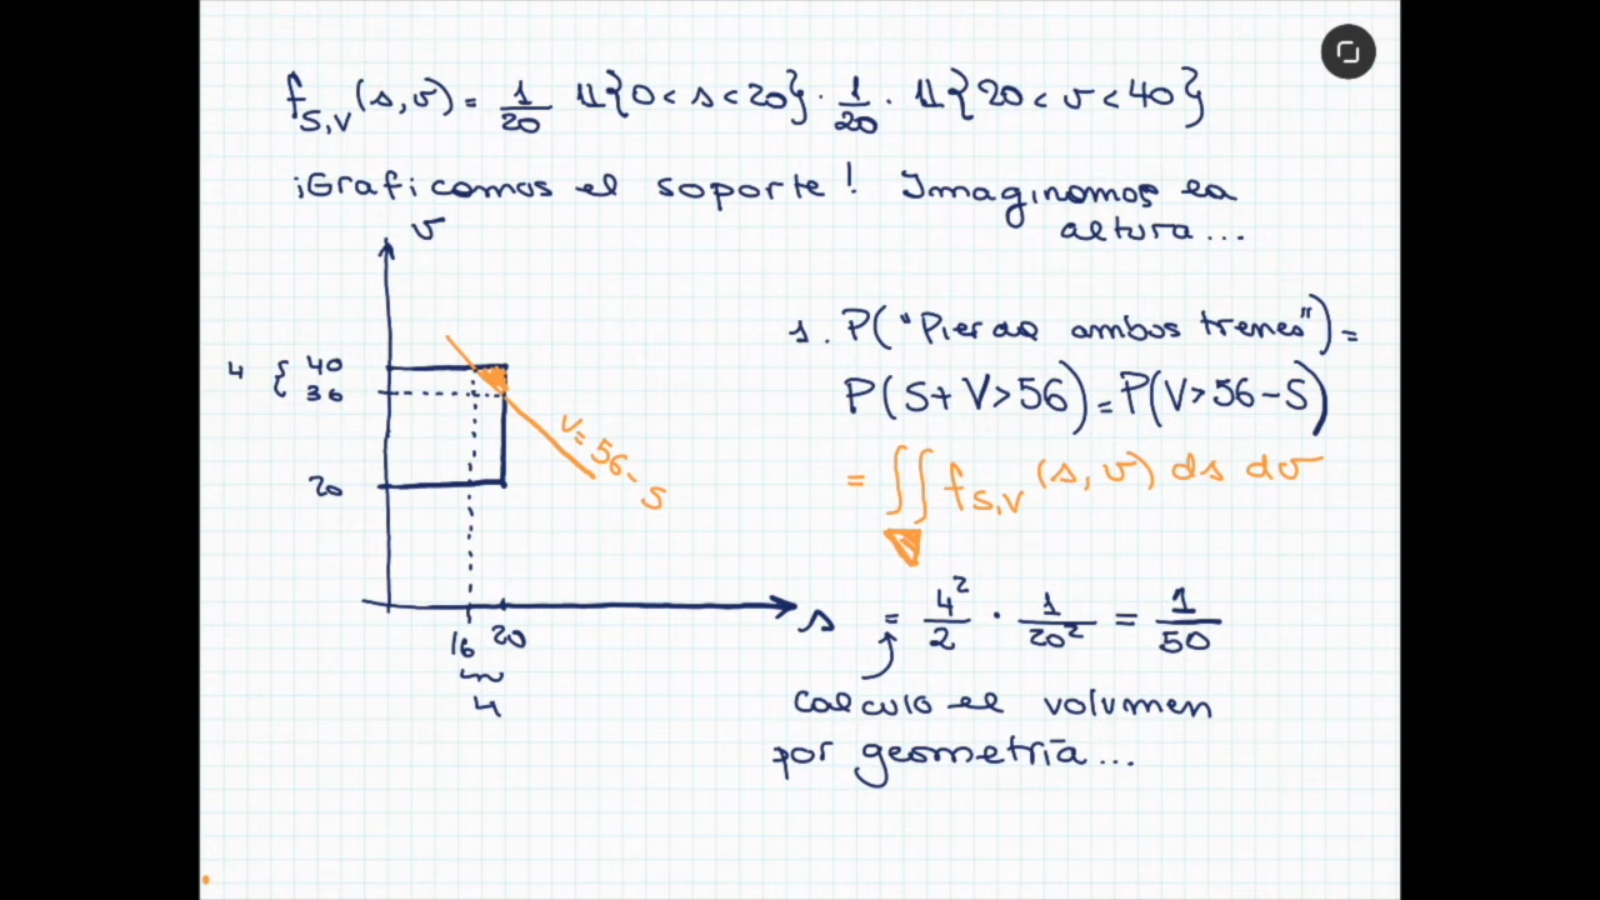 f_{S,V}(s,v) = 1/20 𝟙{0 < s < 20} · 1/20 · 𝟙{20 < v < 40}
¡Graficamos el soporte! Imaginamos la
altura...
v
4 { 40
36
20
v = 56 - s
16 20
4
s
1. P("Pierde ambos trenes") =
P(S+V > 56) = P(V > 56 - S)
= ∫∫ f_{S,V}(s,v) ds dv
= 4²/2 · 1/20² = 1/50
Calculo el volumen
por geometría...